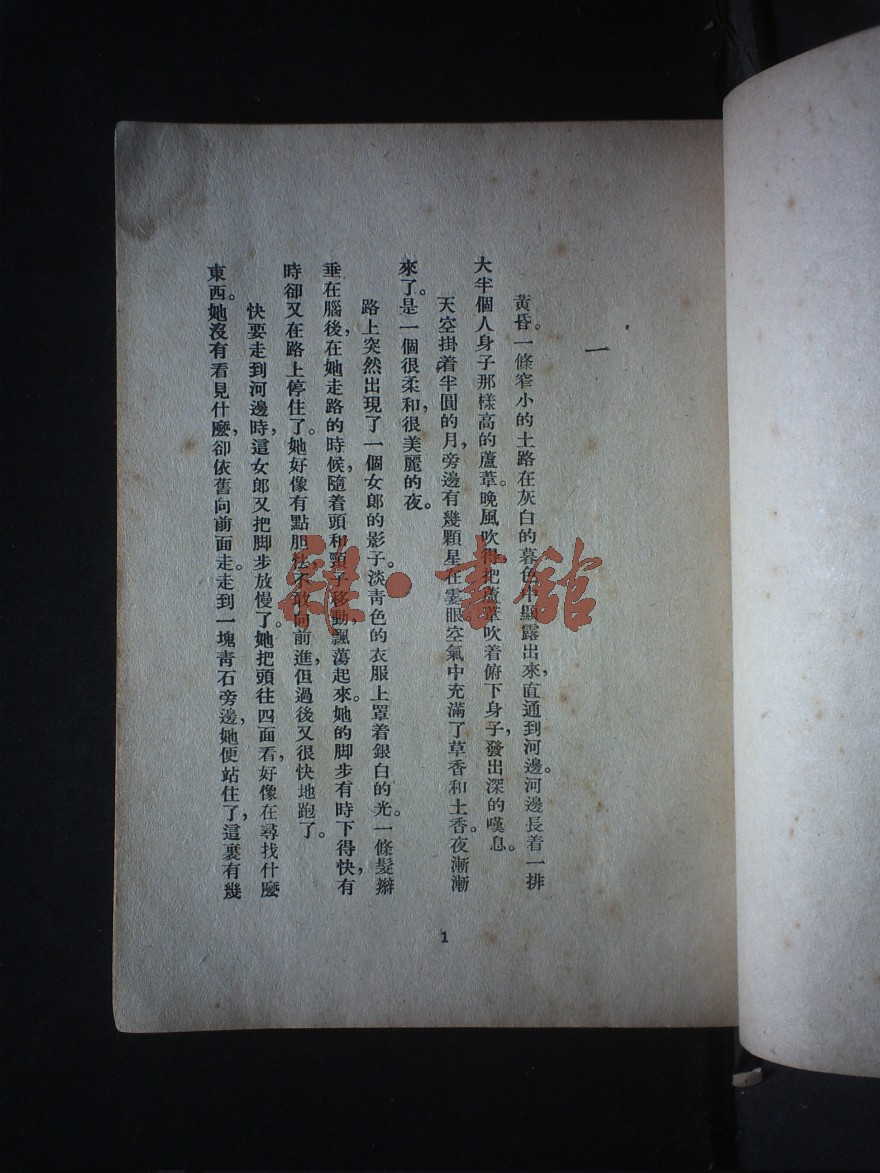 一
黃昏。一條窄小的土路在灰白的暮色中顯露出來,直通到河邊。河邊長着一排
大半個人身子那樣高的蘆葦。晚風吹得把蘆葦吹着俯下身子,發出深的嘆息。
天空掛着半圓的月,旁邊有幾顆星在霎眼。空氣中充滿了草香和土香。夜漸漸
來了。是一個很柔和,很美麗的夜。
路上突然出現了一個女郎的影子。淡青色的衣服上罩着銀白的光。一條髮辮
垂在腦後,在她走路的時候,隨着頭和頸子移動飄蕩起來。她的脚步有時下得快,有
時卻又在路上停住了。她好像有點胆怯,不敢向前進,但過後又很快地跑了。
快要走到河邊時,這女郎又把脚步放慢了。她把頭往四面看,好像在尋找什麼
東西。她沒有看見什麼,卻依舊向前面走。走到一塊青石旁邊,她便站住了,這裏有幾
1
雜·書館